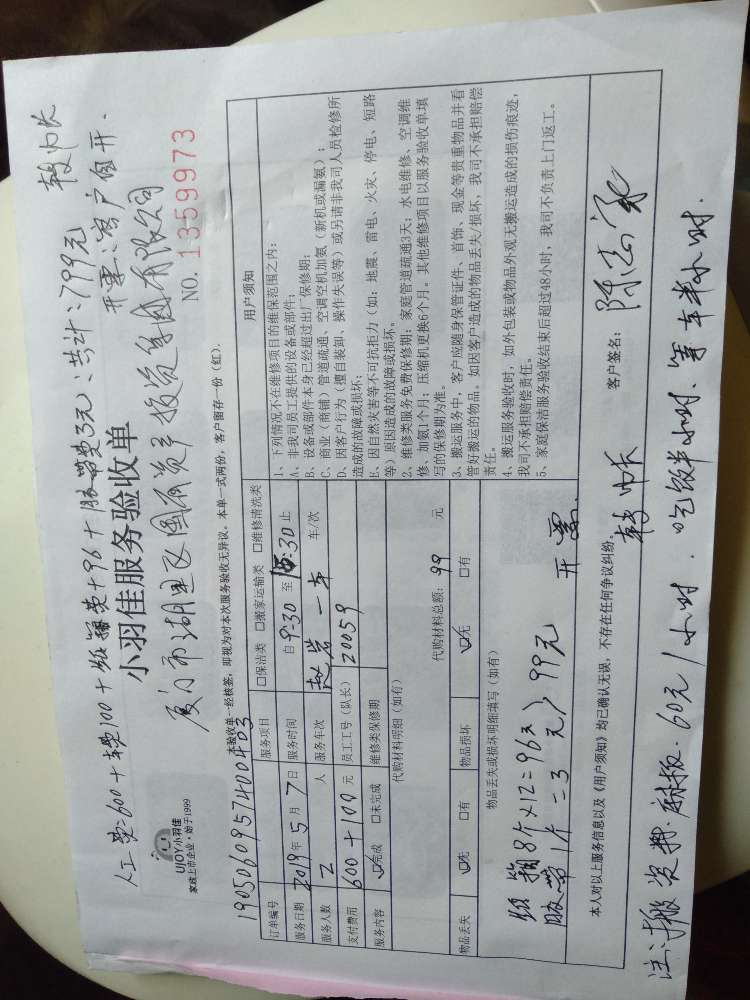 人工费=600+车费100+纸箱费+96+胶带费3元、共计:799元
开票:客户自开.
小羽佳服务验收单
UJOY小羽佳
家政上市企业·始于1999
厦门市湖里区国有资产投资集团有限公司
NO. 1359973
本验收单一经核签,即视为对本次服务验收无异议。本单一式两份,客户留存一份(红).
订单编号 19050609574004D3
服务项目 □保洁类 □搬家运输类 □维修清洗类
服务日期 2019年5月7日 服务时间 自 9:30 至 15:30 止
服务人数 2 人 服务车次 一车 车/次
支付费用 600+100 元 员工工号(队长) 20059
服务内容 ☑完成 □未完成 维修类保修期
代购材料明细(如有)
代购材料总额: 99 元
物品丢失 ☑无 □有 物品损坏 ☑无 □有
物品丢失或损坏明细填写(如有)
纸箱8个×12=96元
胶带1个=3元 > 99元 开票
用户须知
1、下列情况不在维修项目的维保范围之内:
A、非我司员工提供的设备或部件;
B、设备或部件本身已经超过出厂保修期;
C、商业(商铺)管道疏通、空调空机加氨(新机或漏氨);
D、因客户行为(擅自装卸、操作失误等)或另请非我司人员检修所
造成的故障或损坏;
E、因自然灾害等不可抗拒力(如:地震、雷电、火灾、停电、短路
等)原因造成的故障或损坏。
2、维修类服务免费保修期:家庭管道疏通3天;水电维修、空调维
修、加氨1个月;压缩机更换6个月。其他维修项目以服务验收单填
写的保修期为准。
3、搬运服务中,客户应随身保管证件、首饰、现金等贵重物品并看
管好搬运的物品。如因客户造成的物品丢失/损坏,我司不承担赔偿
责任。
4、搬运服务验收时,如外包装或物品外观无搬运造成的损伤痕迹,
我司不承担赔偿责任。
5、家庭保洁服务验收结束后超过48小时,我司不负责上门返工。
本人对以上服务信息以及《用户须知》均已确认无误,不存在任何争议纠纷。
客户签名:
注:搬资料.麻板.60元/小时.吃饭半小时.等车半小时.